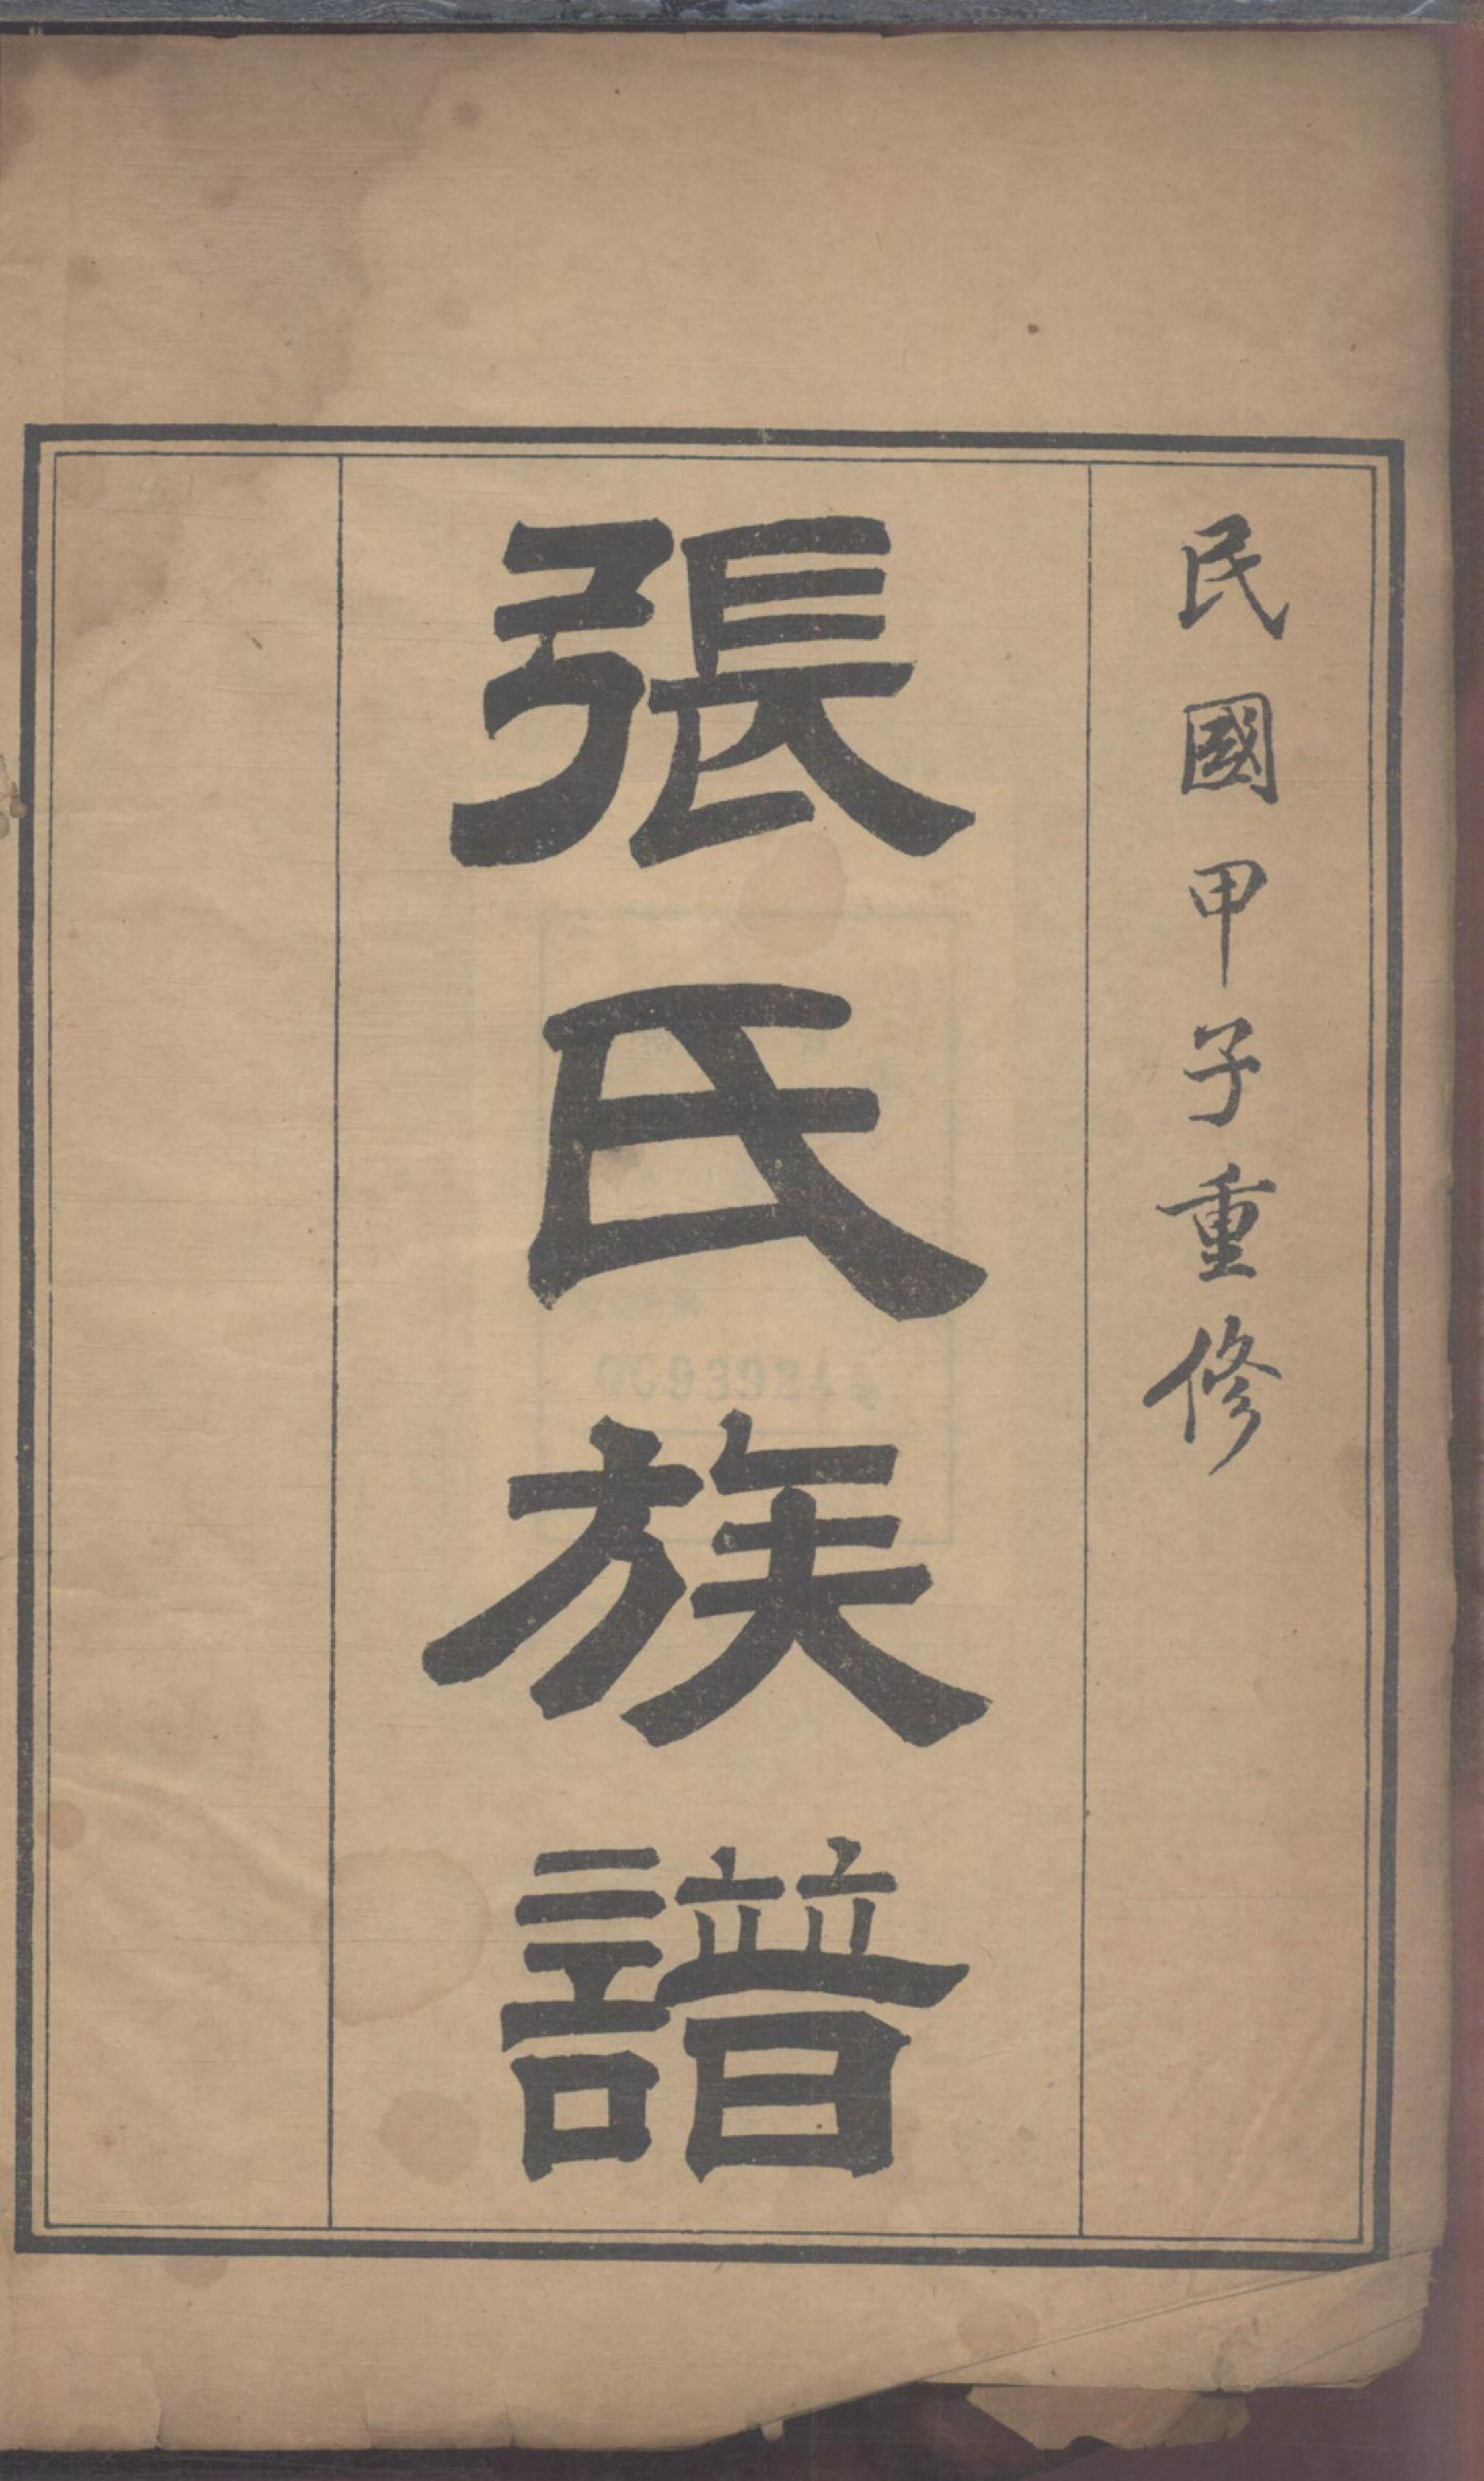 民國甲子重修
張氏族譜